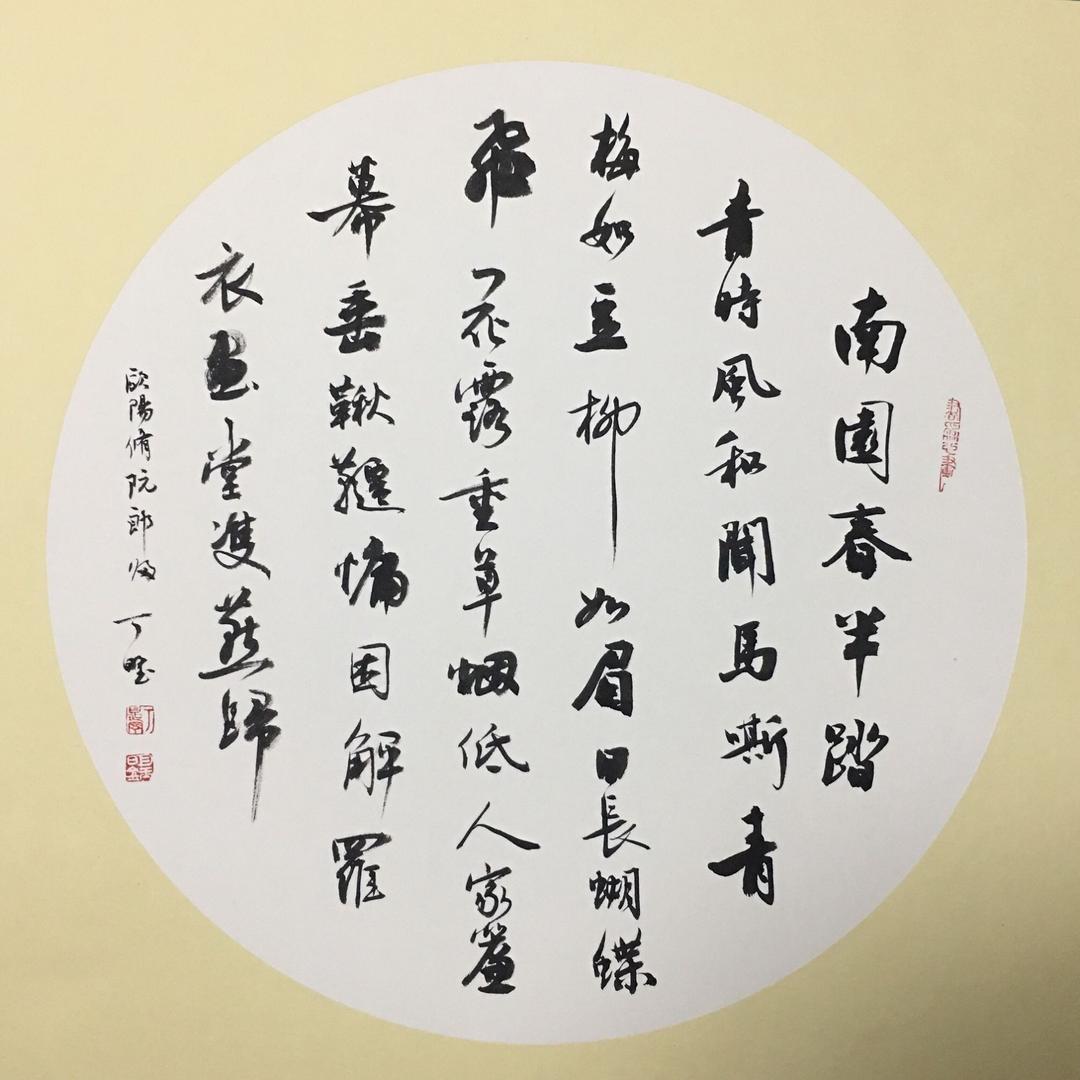 南園春半踏
青時風和聞馬嘶青
梅如豆柳如眉日長蝴蝶
飛花露重草烟低人家簾
幕垂鞦韆慵困解羅
衣畫堂雙燕歸
歐陽脩阮郎歸 丁